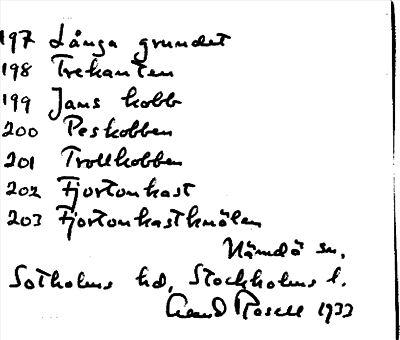 197 Långa grundet
198 Trekanten
199 Jans kobb
200 Peskobben
201 Trollkobben
202 Fjortonkast
203 Fjortonkastknölen
Nämdö sn.
Sotholms hd, Stockholms l.
Rosell 1933